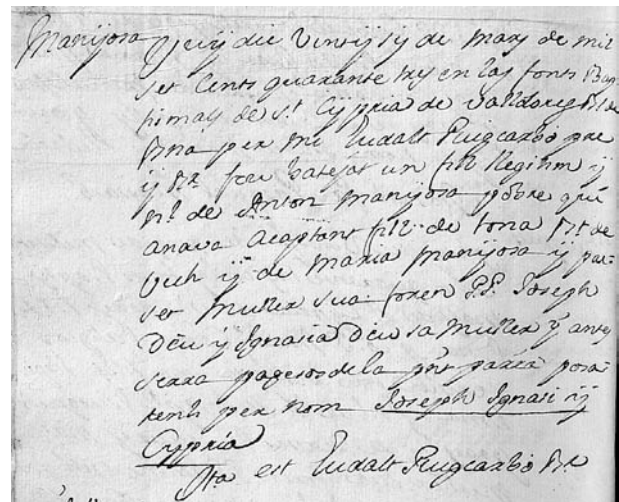 Manyosa Vuy die Vintysis de Mars de mil
set Cents quarante trey en las fonts Bap-
timals de St. Cypria de Valldoreg Bt de
Bna per mi Eudalt Puigcarbó pre
y Rr fou batejat un fill llegitim y
nl de Anton Manyosa pobre que
anava acaptant fill de tona Bt de
Vich y de Maria Manyosa y
ser Muller sua foren P.P. Joseph
Déu y Ignasia Déu sa Muller y
Serra pagesos de la pnt parra posa
renli per nom Joseph Ignasi y
Cypria
Ita est Eudalt Puigcarbó Rr